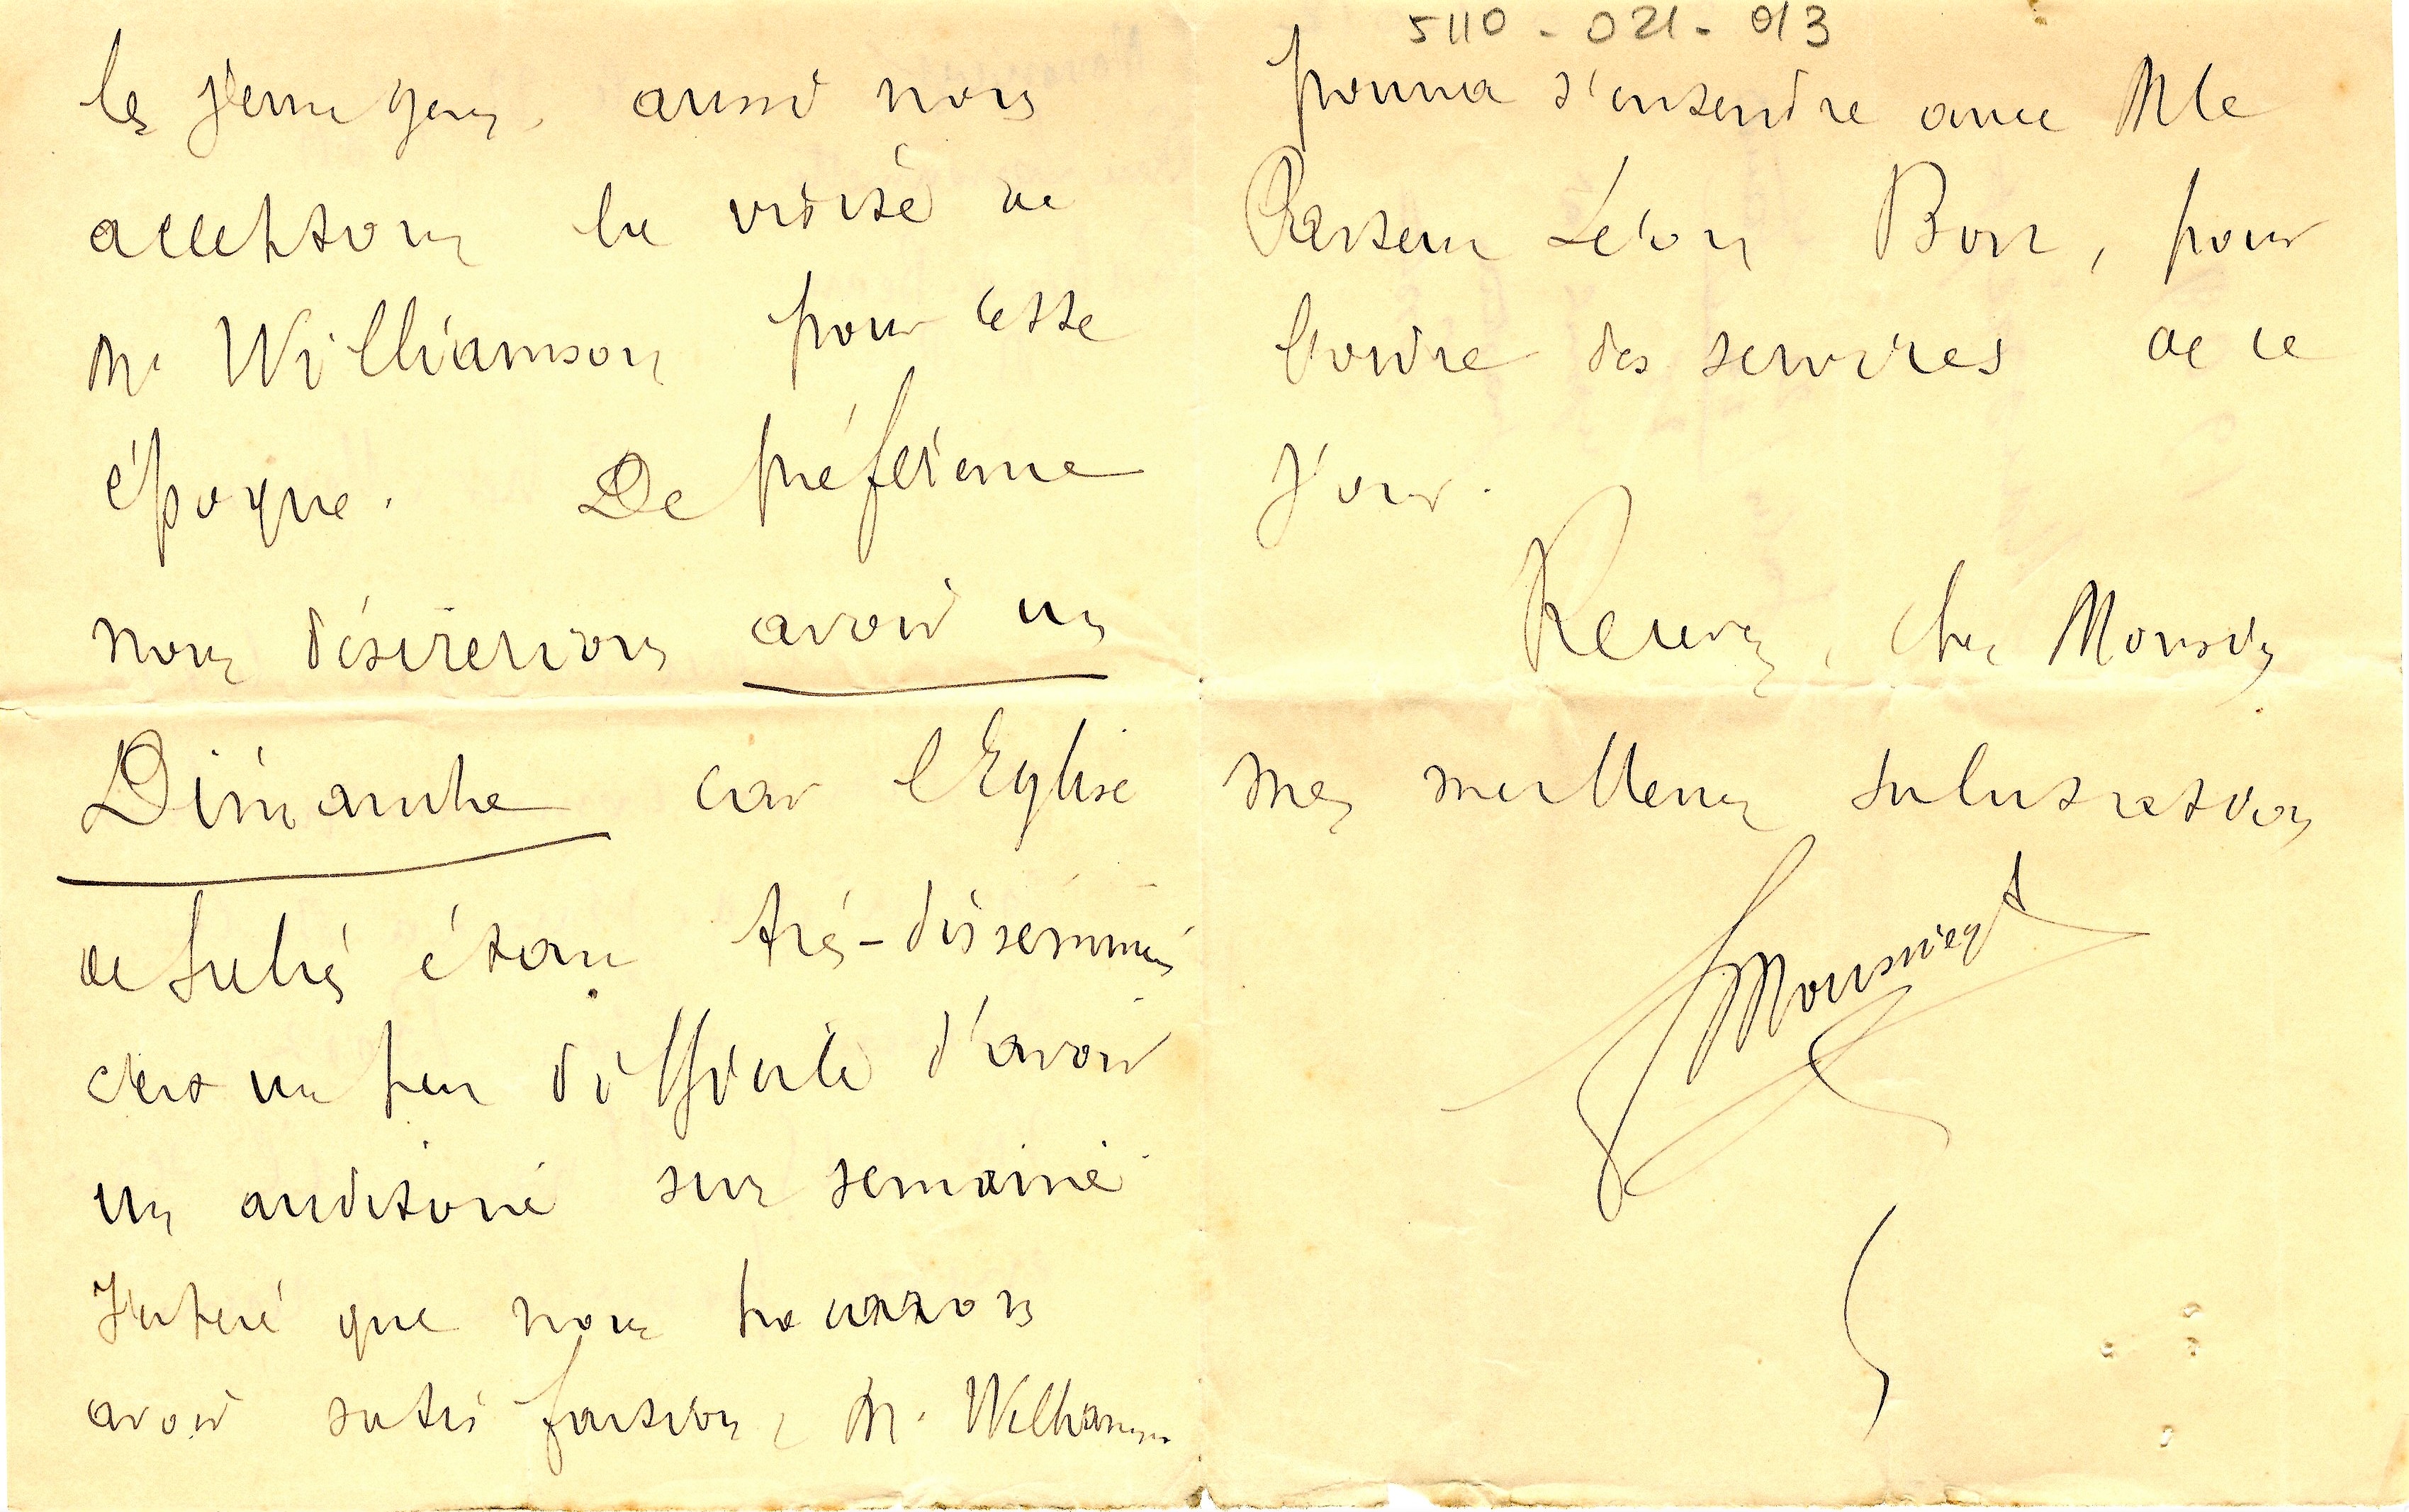 les jeunes gens, aussi nous
acceptons la visite de
Mr Williamson pour cette
époque. De préférence
nous désirerions avoir un
Dimanche car l'Eglise
de étant très-disséminée
c'est un peu difficile d'avoir
un auditoire sur semaine
J'espère que nous pourrons
avoir satisfaction, M. Williamson
5110-021-013
pourra s'entendre avec Mr le
Pasteur Léon Bost, pour
l'ordre des services de ce
jour.
Recevez, cher Monsieur
mes meilleures salutations